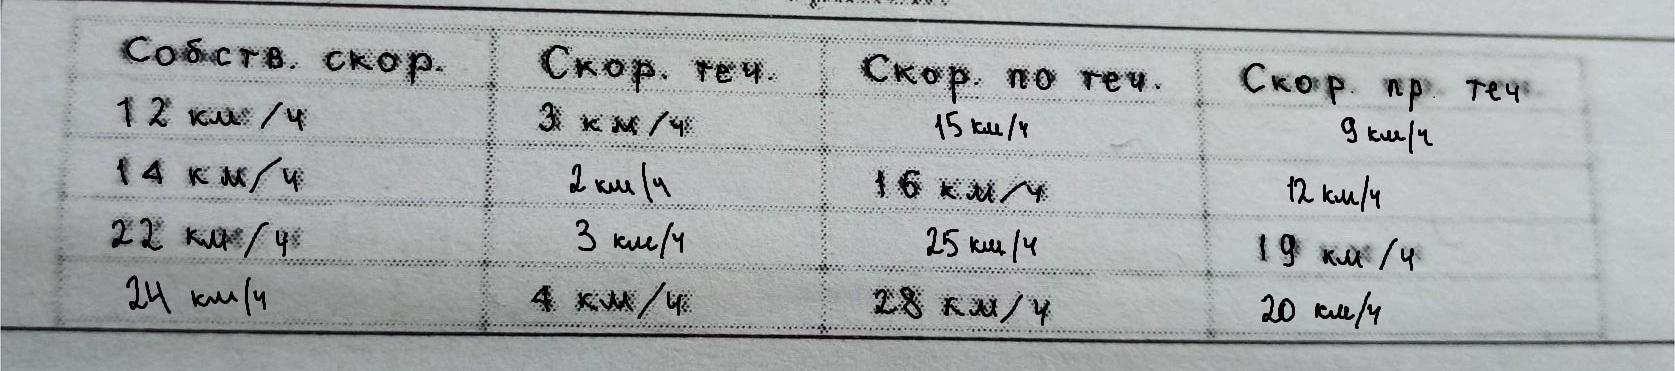 Собств. скор. Скор. теч. Скор. по теч. Скор. пр. теч.
12 км/ч 3 км/ч 15 км/ч 9 км/ч
14 км/ч 2 км/ч 16 км/ч 12 км/ч
22 км/ч 3 км/ч 25 км/ч 19 км/ч
24 км/ч 4 км/ч 28 км/ч 20 км/ч